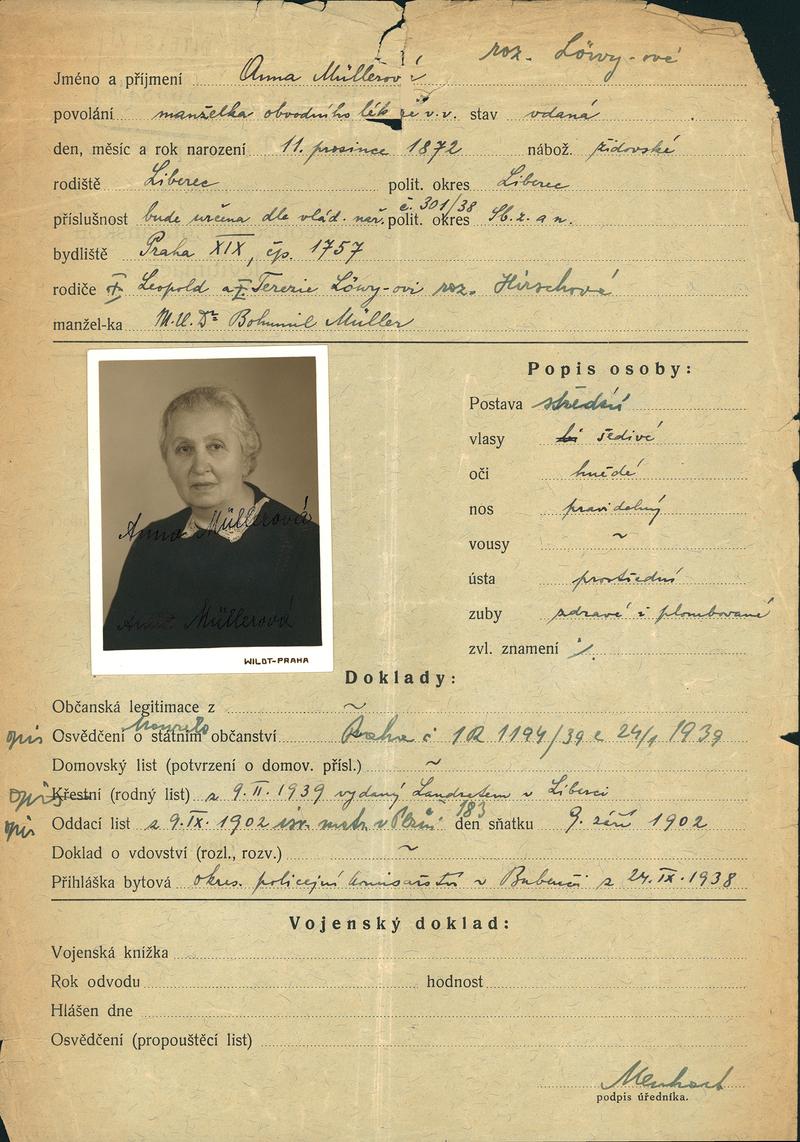 roz. Löwy-ové
Jméno a příjmení Anna Müllerová
povolání manželka obvodního lékaře v.v. stav vdaná
den, měsíc a rok narození 11. prosince 1872 nábož. židovské
rodiště Liberec polit. okres Liberec
č. 301/38
příslušnost bude určena dle vlád. nař. polit. okres Sb. z. a n.
bydliště Praha XIX, čp. 1757
rodiče Leopold a Terezie Löwy-ovi roz. Hirschová
manžel-ka M.U.Dr Bohumil Müller
Popis osoby:
Postava střední
vlasy šedivé
oči hnědé
nos pravidelný
vousy ~
ústa prostřední
zuby zdravé i plombované
zvl. znamení /.
Anna Müllerová
Anna Müllerová
WILDT-PRAHA
Doklady:
Občanská legitimace z ~
opis Osvědčení o státním občanství Praha č 1R 1194/39 z 24/1 1939
Domovský list (potvrzení o domov. přísl.) ~
opis Křestní (rodný list) z 9.II.1939 vydaný Landratem v Liberci
183
opis Oddací list z 9.IX.1902 isr. matr. v Plzni den sňatku 9. září 1902
Doklad o vdovství (rozl., rozv.) ~
Přihláška bytová okres. policejní komisařství v Bubenči z 24.IX.1938
Vojenský doklad:
Vojenská knížka
Rok odvodu hodnost
Hlášen dne
Osvědčení (propouštěcí list)
podpis úředníka.